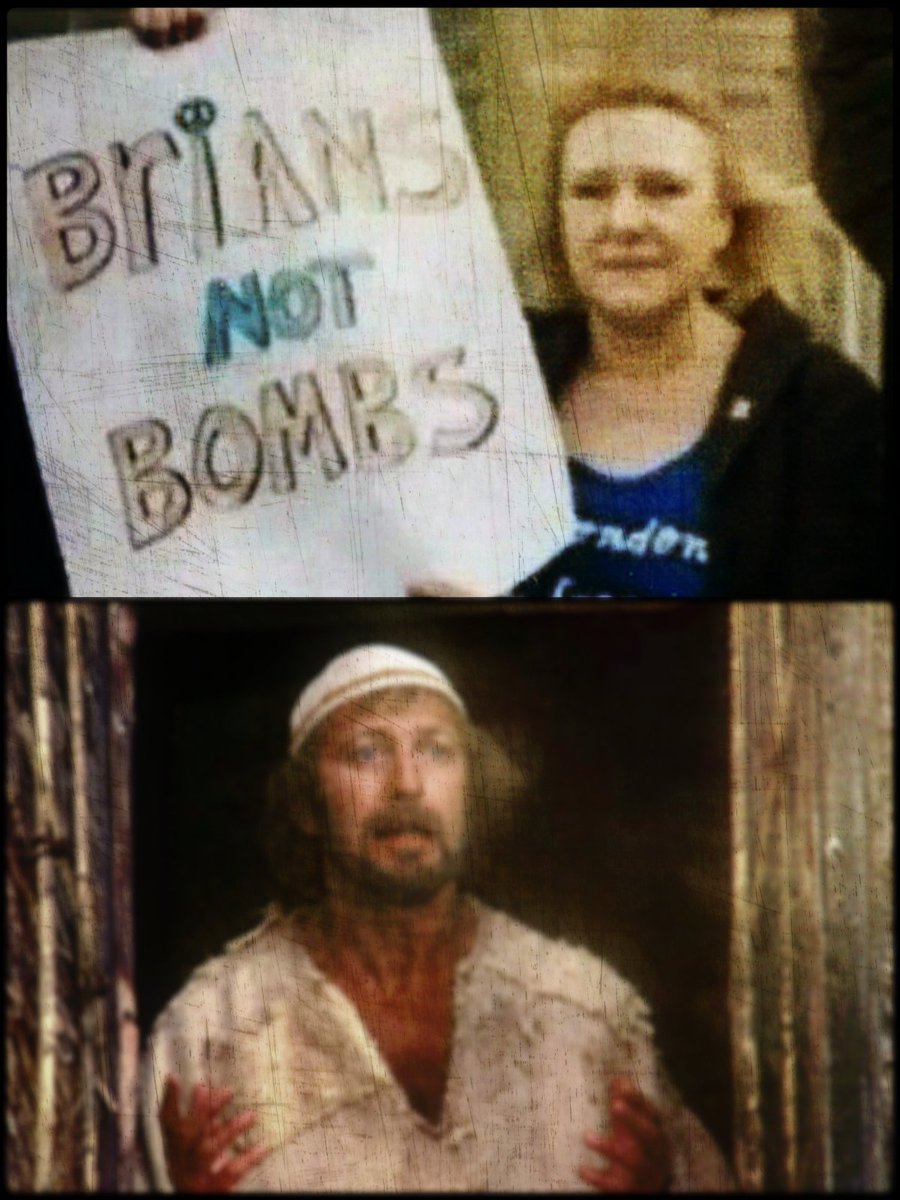 BriANS
NOT
BOMBS
ondon